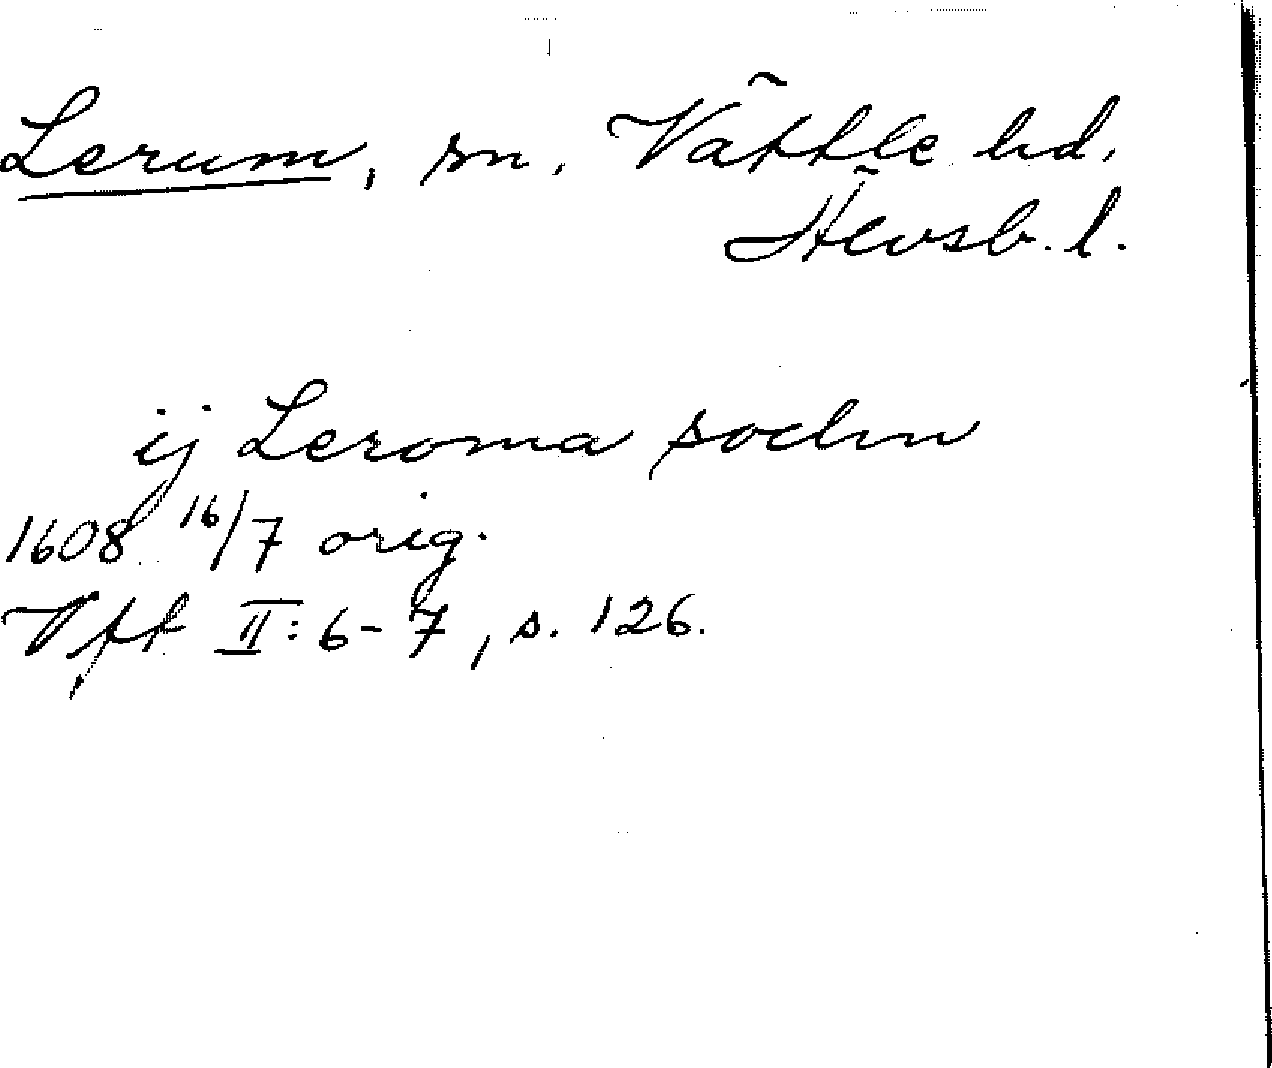 Lerum, sn. Vättle hd,
Älvsb. l.
ij Leroma sochn
1608 16/7 orig.
Vft II: 6-7, s. 126.